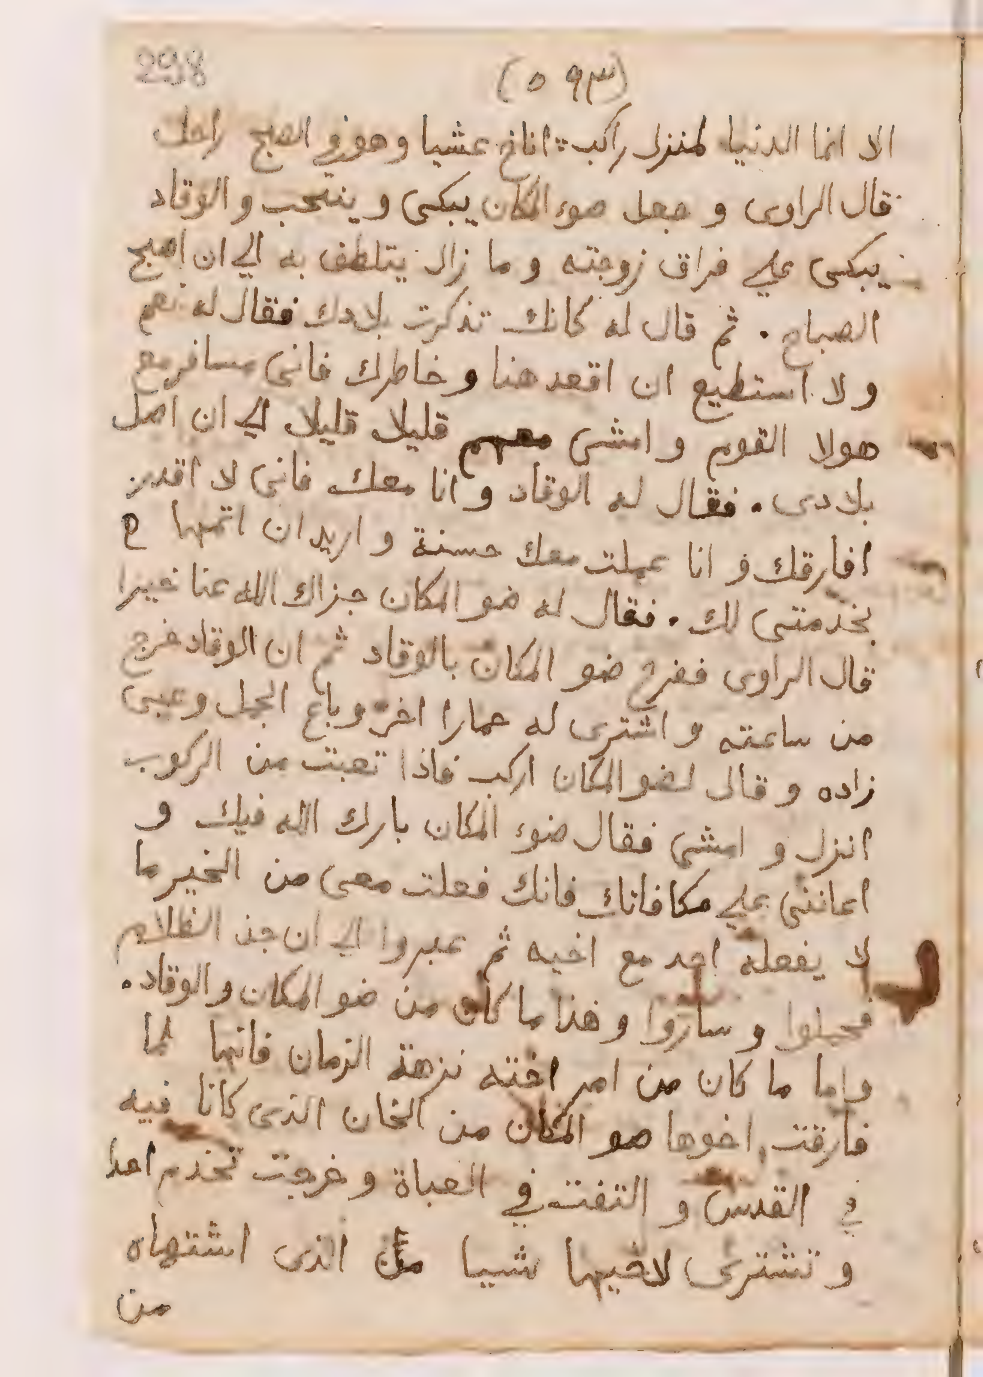 298
(٥٩٣)
الا انما الدنيا لمنزل راكب : اناخ عشيا وهو في الصبح راحل
قال الراوى و جعل ضوء المكان يبكى و ينتحب و الوقاد
يبكى علي فراق زوجته و ما زال يتلطف به الي ان اصبح
الصباح . ثم قال له كانك تذكرت بلادك فقال له نعم
و لا استطيع ان اقعد هنا و خاطرك فانى مسافر مع
هولا القوم و امشى معهم قليلا قليلا الي ان اصل
بلادى . فقال له الوقاد و انا معك فانى لا اقدر
افارقك و انا عملت معك حسنة و اريد ان اتمها
بخدمتى لك . فقال له ضو المكان جزاك الله عنا خيرا
قال الراوى ففرح ضو المكان بالوقاد ثم ان الوقاد خرج
من ساعته و اشترى له حمارا اخر و باع الجمل و عبى
زاده و قال لضو المكان اركب فاذا تعبت من الركوب
انزل و امشى فقال ضوء المكان بارك الله فيك و
اعاننى علي مكافاتك فانك فعلت معى من الخير ما
لا يفعله احد مع اخيه ثم عبروا الي ان جن الظلام
فحملوا و ساروا و هذا ما كان من ضو المكان و الوقاد .
و اما ما كان من امر اخته نزهة الزمان فانها لما
فارقت اخوها ضو المكان من الخان الذى كانا فيه
في القدس و التفت في العباة و خرجت تخدم احدا
و تشترى لاخيها شيا من الذى اشتهاه
من